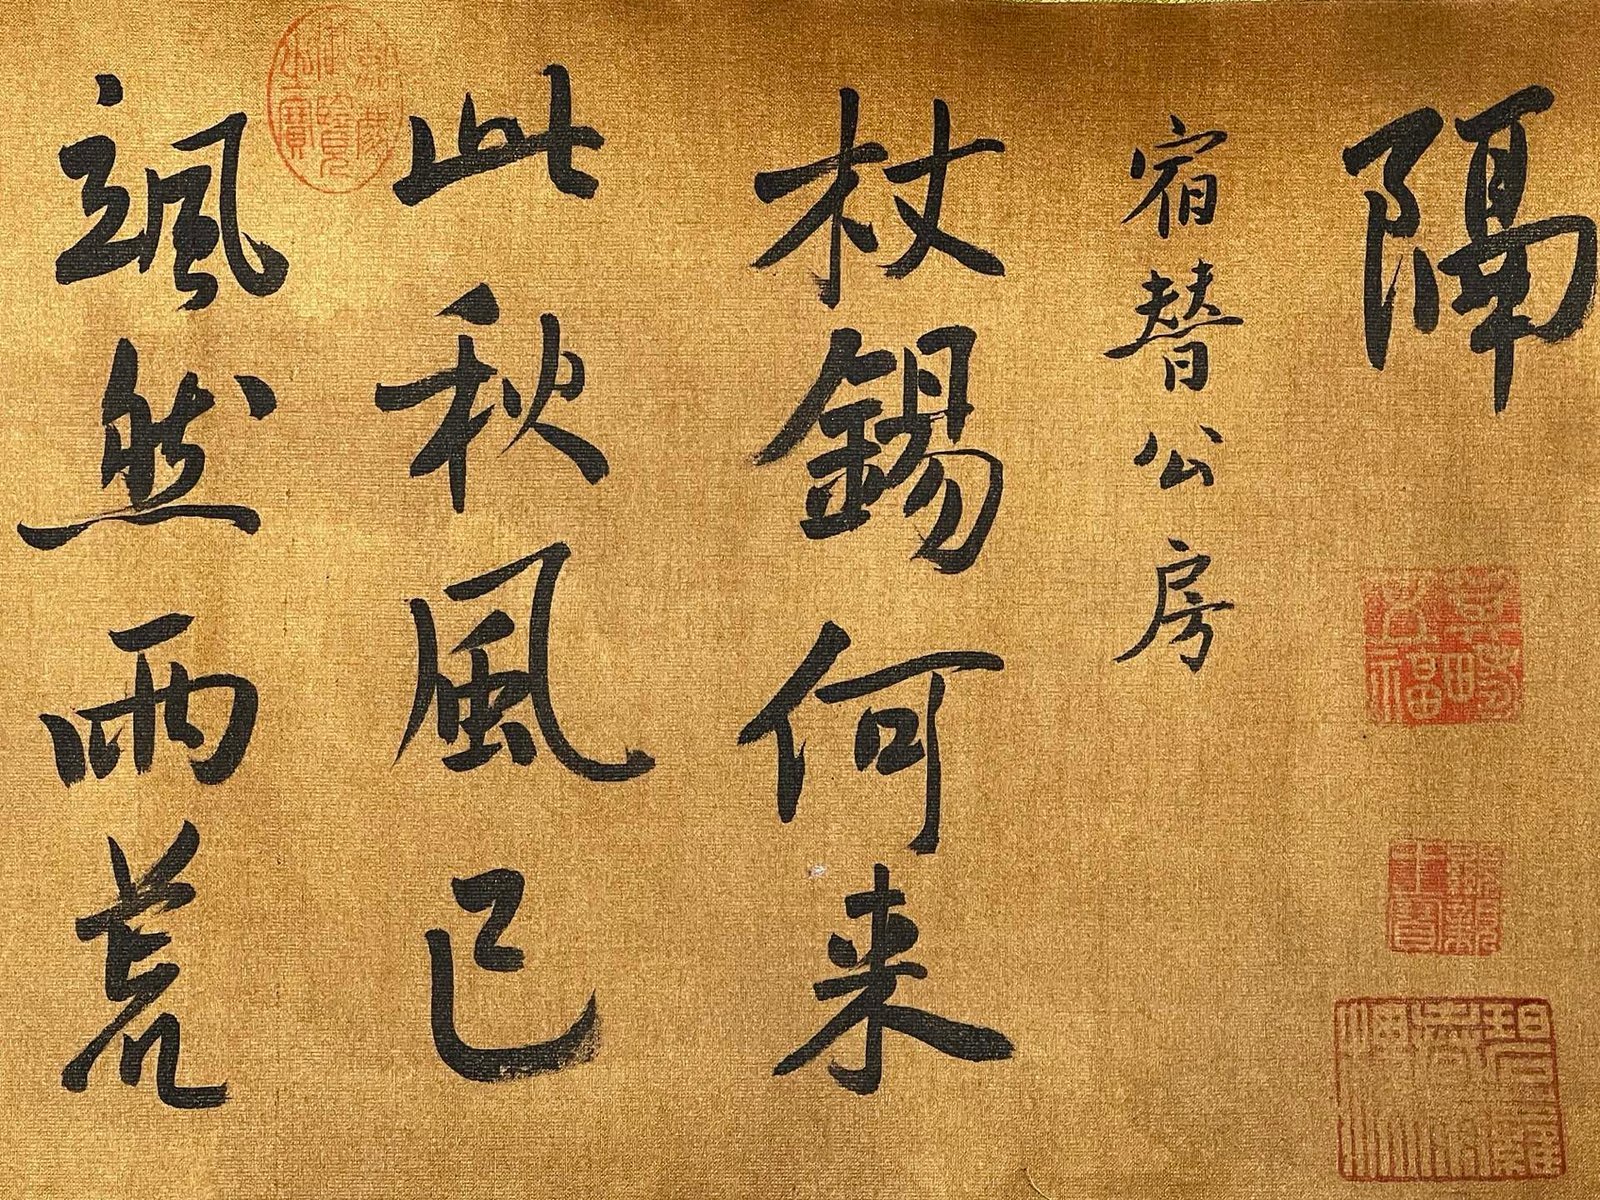 隔
宿替公房
杖錫何来
此秋風已
颯然雨荒